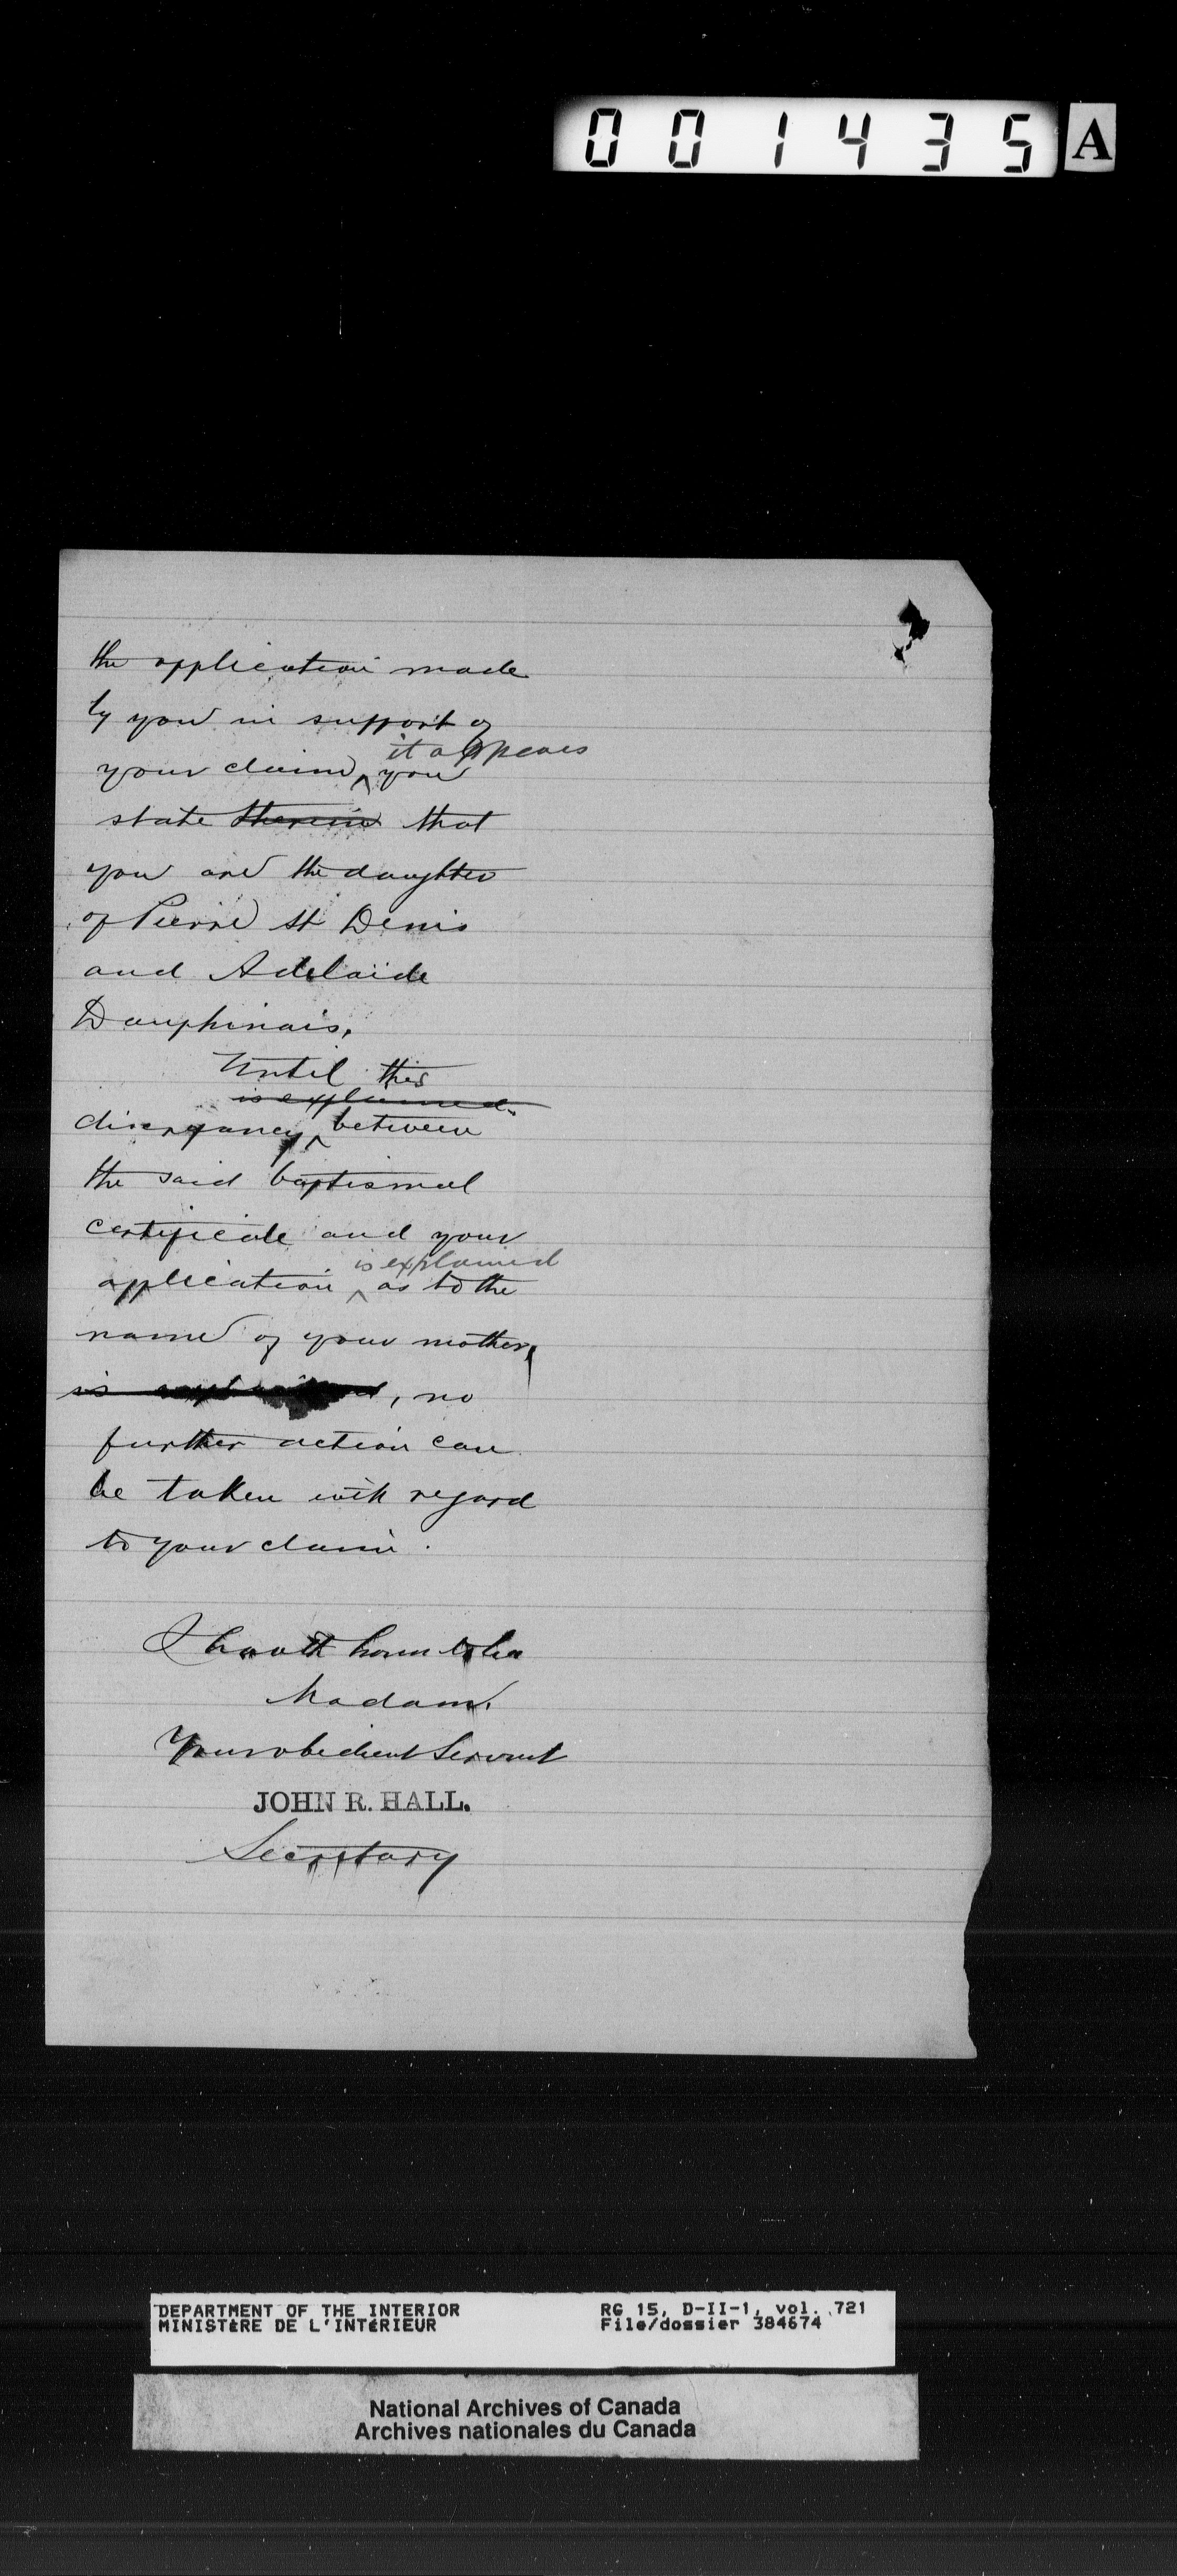 001435 A
the application made
by you in support of
it appears
your claim, ^ you
state therein that
you are the daughter
of Pierre St Denis
and Adelaide
Dauphinais.
Until this
is explained
discrepancy ^ between
the said baptismal
certificate and your
is explained
application ^ as to the
name of your mother,
is explained, no
further action can
be taken with regard
to your claim.
I have the honour to be
Madam.
Your obedient Servant
JOHN R. HALL.
Secretary
DEPARTMENT OF THE INTERIOR RG 15, D-II-1, vol. 721
MINISTÈRE DE L'INTÉRIEUR File/dossier 384674
National Archives of Canada
Archives nationales du Canada